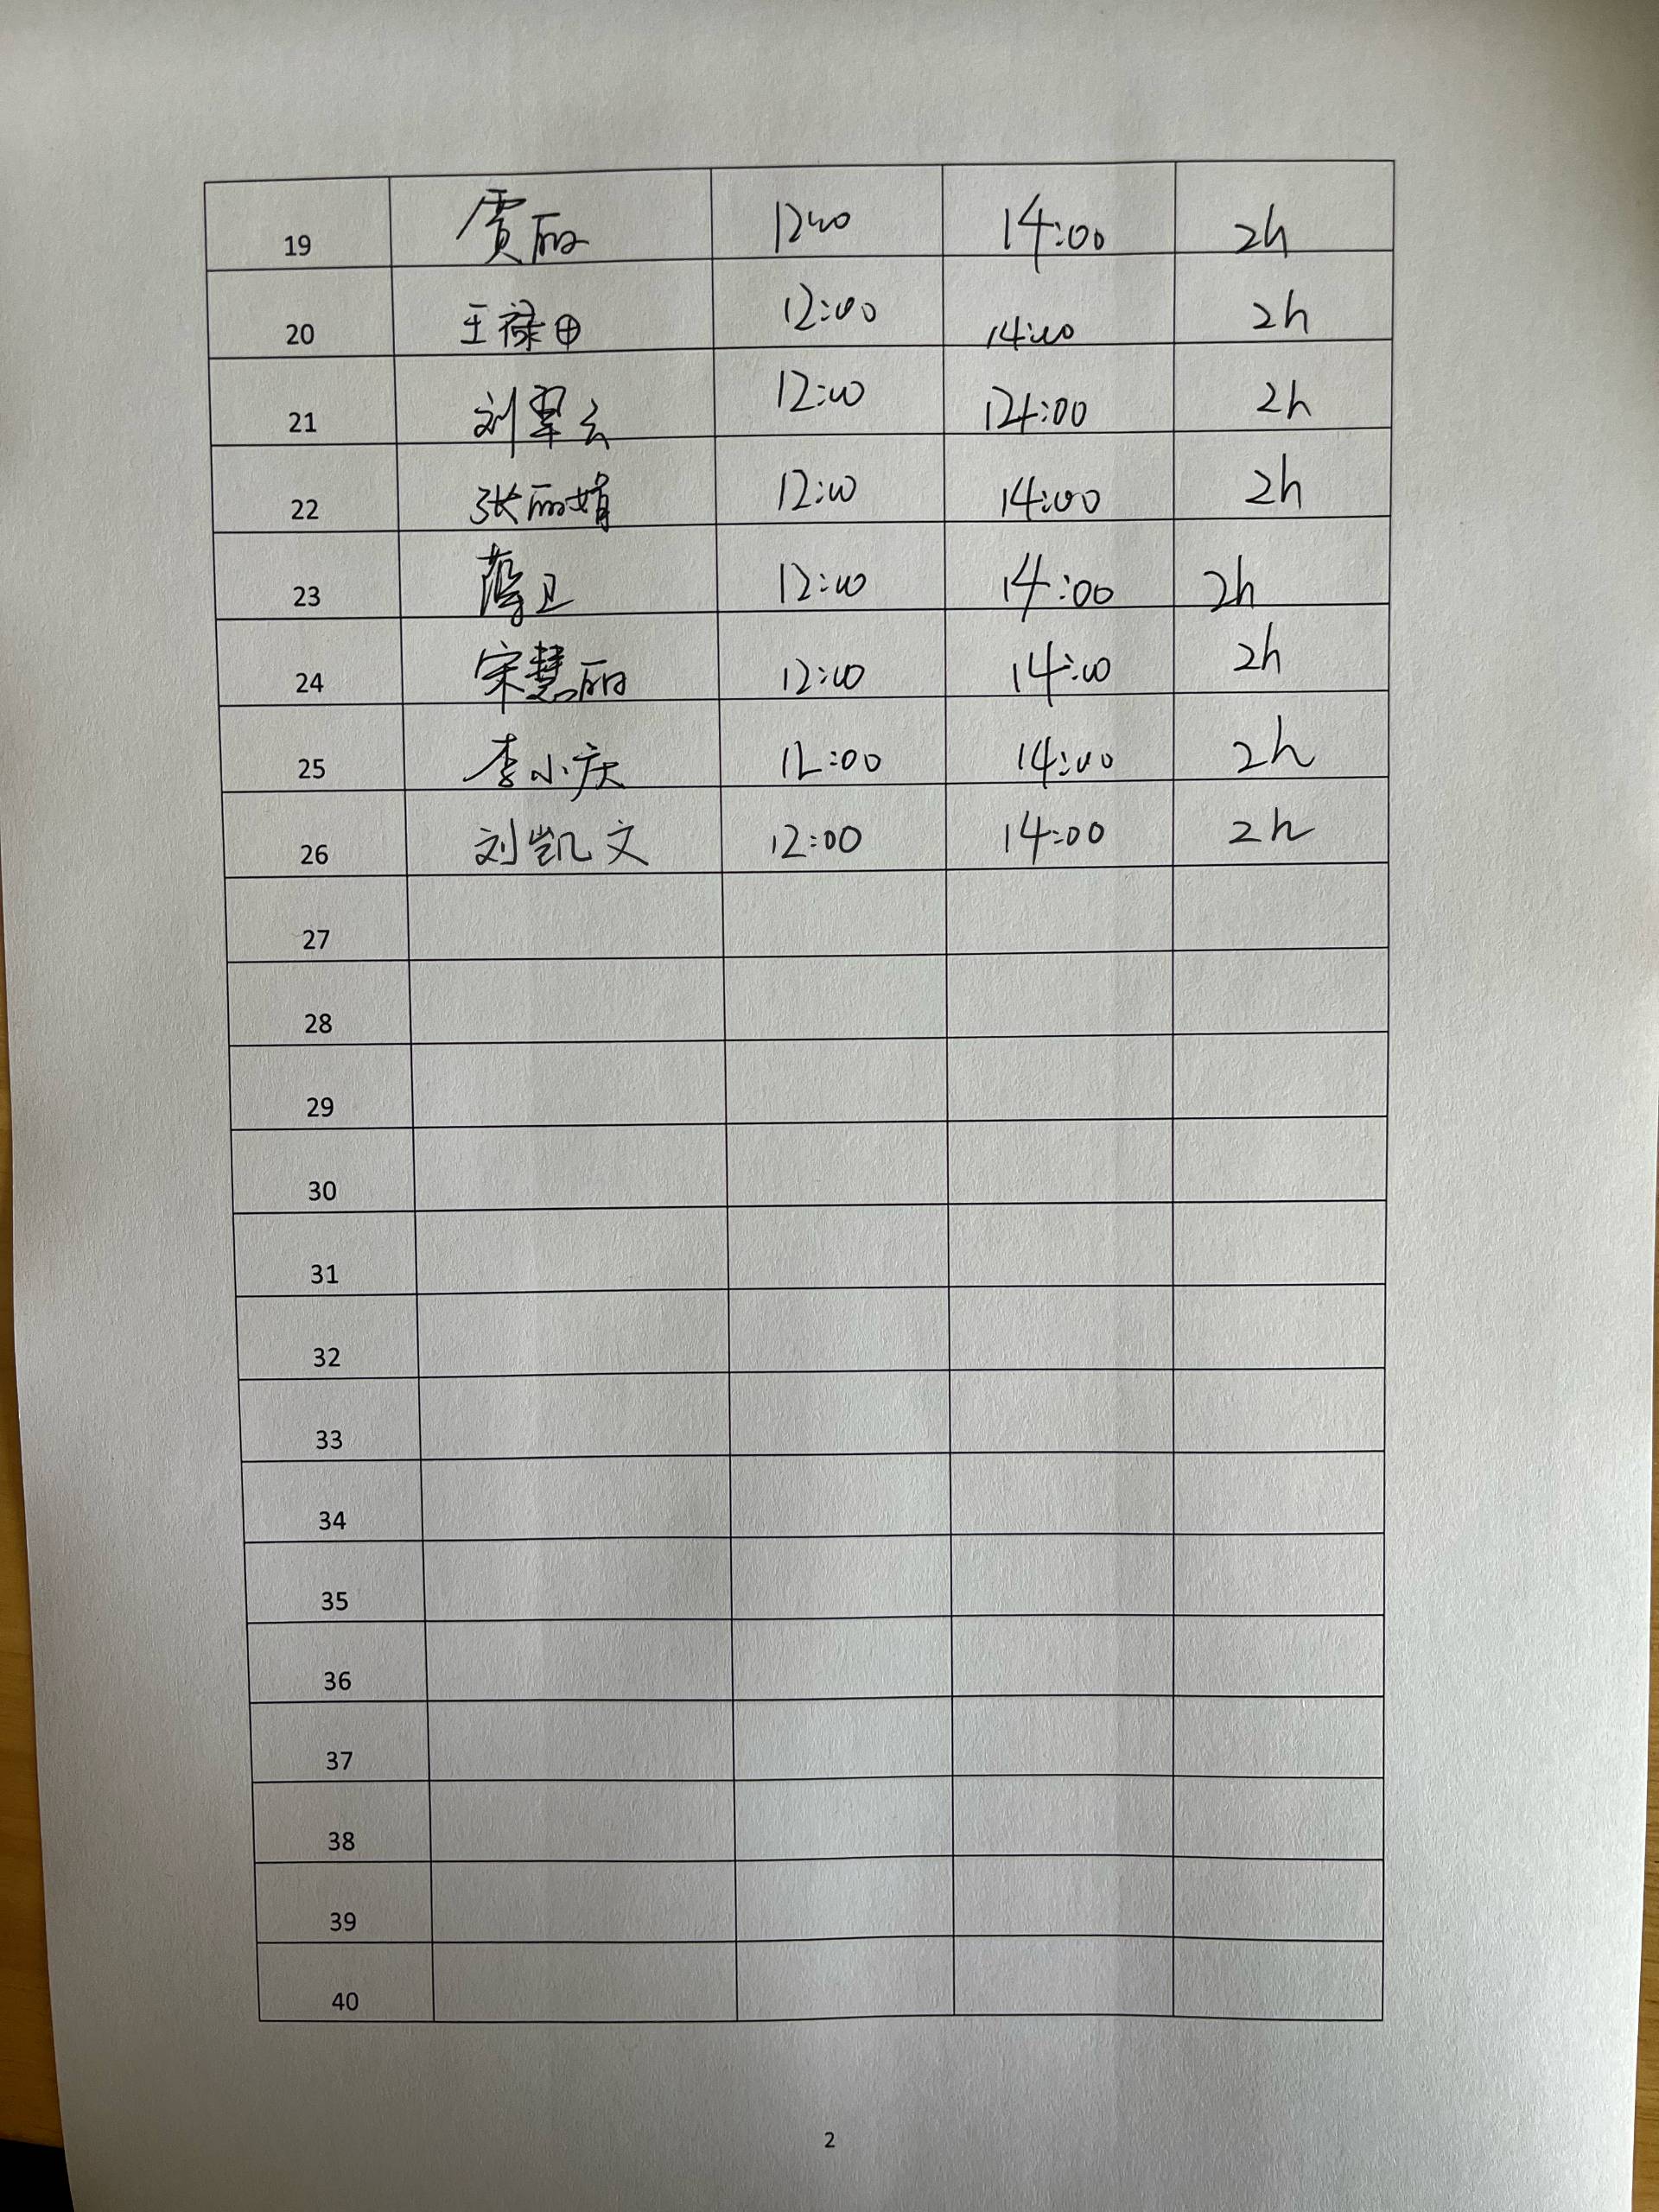 19 贾丽 12:00 14:00 2h
20 王禄田 12:00 14:00 2h
21 刘翠云 12:00 14:00 2h
22 张丽娟 12:00 14:00 2h
23 卫 12:00 14:00 2h
24 宋慧丽 12:00 14:00 2h
25 李小庆 12:00 14:00 2h
26 刘凯文 12:00 14:00 2h
27
28
29
30
31
32
33
34
35
36
37
38
39
40
2